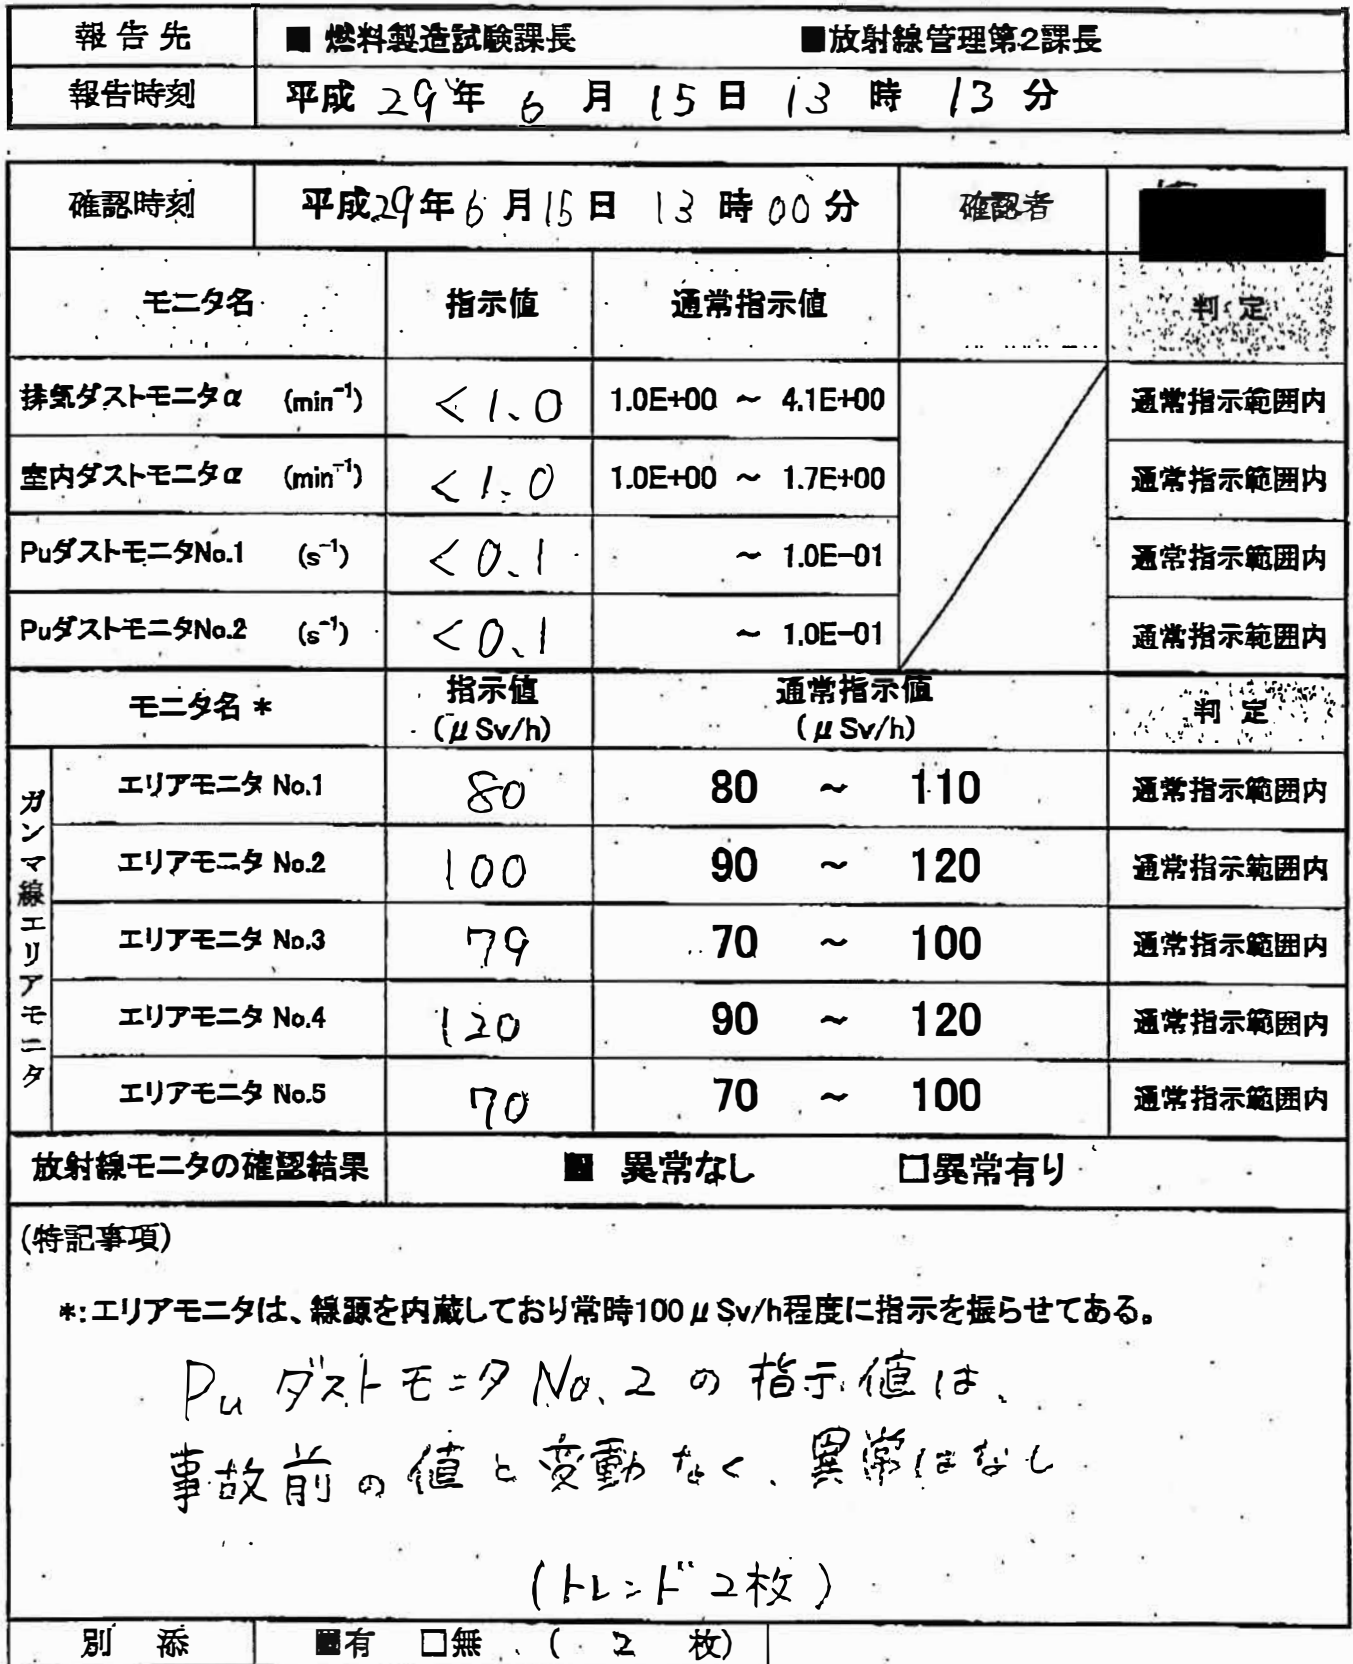 報告先 ■ 燃料製造試験課長 ■放射線管理第2課長
報告時刻 平成 29 年 6 月 15 日 13 時 13 分
確認時刻 平成29年6月15日 13時00分 確認者
モニタ名 指示値 通常指示値 判定
排気ダストモニタα (min⁻¹) <1.0 1.0E+00 ～ 4.1E+00 通常指示範囲内
室内ダストモニタα (min⁻¹) <1.0 1.0E+00 ～ 1.7E+00 通常指示範囲内
PuダストモニタNo.1 (s⁻¹) <0.1 ～ 1.0E-01 通常指示範囲内
PuダストモニタNo.2 (s⁻¹) <0.1 ～ 1.0E-01 通常指示範囲内
モニタ名＊ 指示値 通常指示値 判定
(μSv/h) (μSv/h)
ガンマ線エリアモニタ
エリアモニタ No.1 80 80 ～ 110 通常指示範囲内
エリアモニタ No.2 100 90 ～ 120 通常指示範囲内
エリアモニタ No.3 79 70 ～ 100 通常指示範囲内
エリアモニタ No.4 120 90 ～ 120 通常指示範囲内
エリアモニタ No.5 70 70 ～ 100 通常指示範囲内
放射線モニタの確認結果 ■ 異常なし □異常有り
(特記事項)
＊:エリアモニタは、線源を内蔵しており常時100μSv/h程度に指示を振らせてある。
Pu ダストモニタ No.2 の指示値は、
事故前の値と変動なく、異常はなし
(トレンド2枚)
別添 ■有 □無 ( 2 枚)